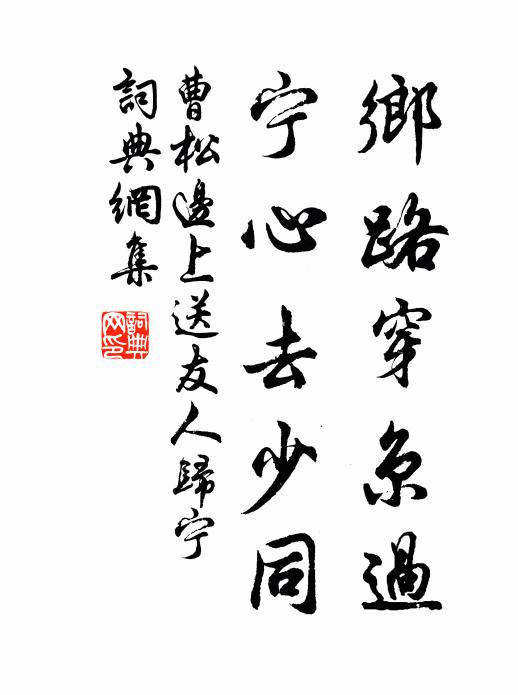 鄉路穿京過
宁心去少同
曹松邊上送友人歸宁
詞典網集
詞典网印